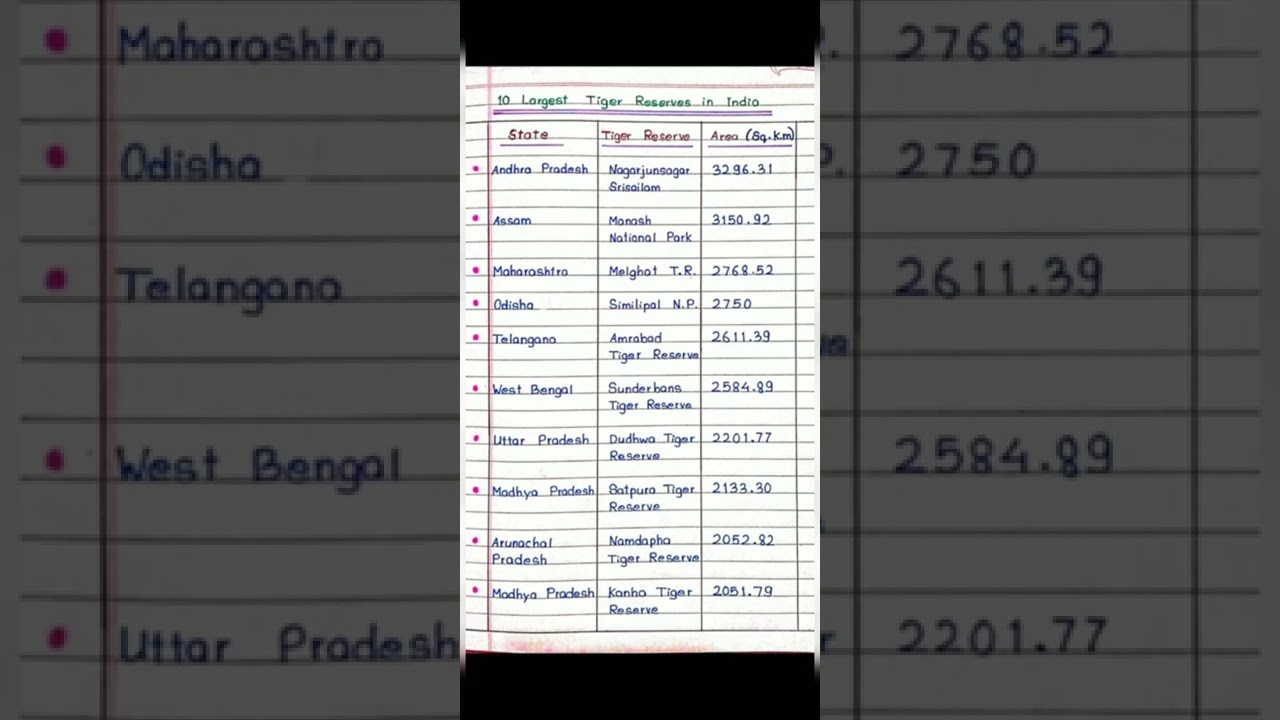 10 Largest Tiger Reserves in India
State Tiger Reserve Area (Sq.Km)
Andhra Pradesh Nagarjunsagar 3296.31
Srisailam
Assam Manash 3150.92
National Park
Maharashtra Melghat T.R. 2768.52
Odisha Similipal N.P. 2750
Telangana Amrabad 2611.39
Tiger Reserve
West Bengal Sunderbans 2584.89
Tiger Reserve
Uttar Pradesh Dudhwa Tiger 2201.77
Reserve
Madhya Pradesh Satpura Tiger 2133.30
Reserve
Arunachal Namdapha 2052.82
Pradesh Tiger Reserve
Madhya Pradesh Kanha Tiger 2051.79
Reserve
Maharashtra 2768.52
Odisha 2750
Telangana 2611.39
West Bengal 2584.89
Uttar Pradesh 2201.77